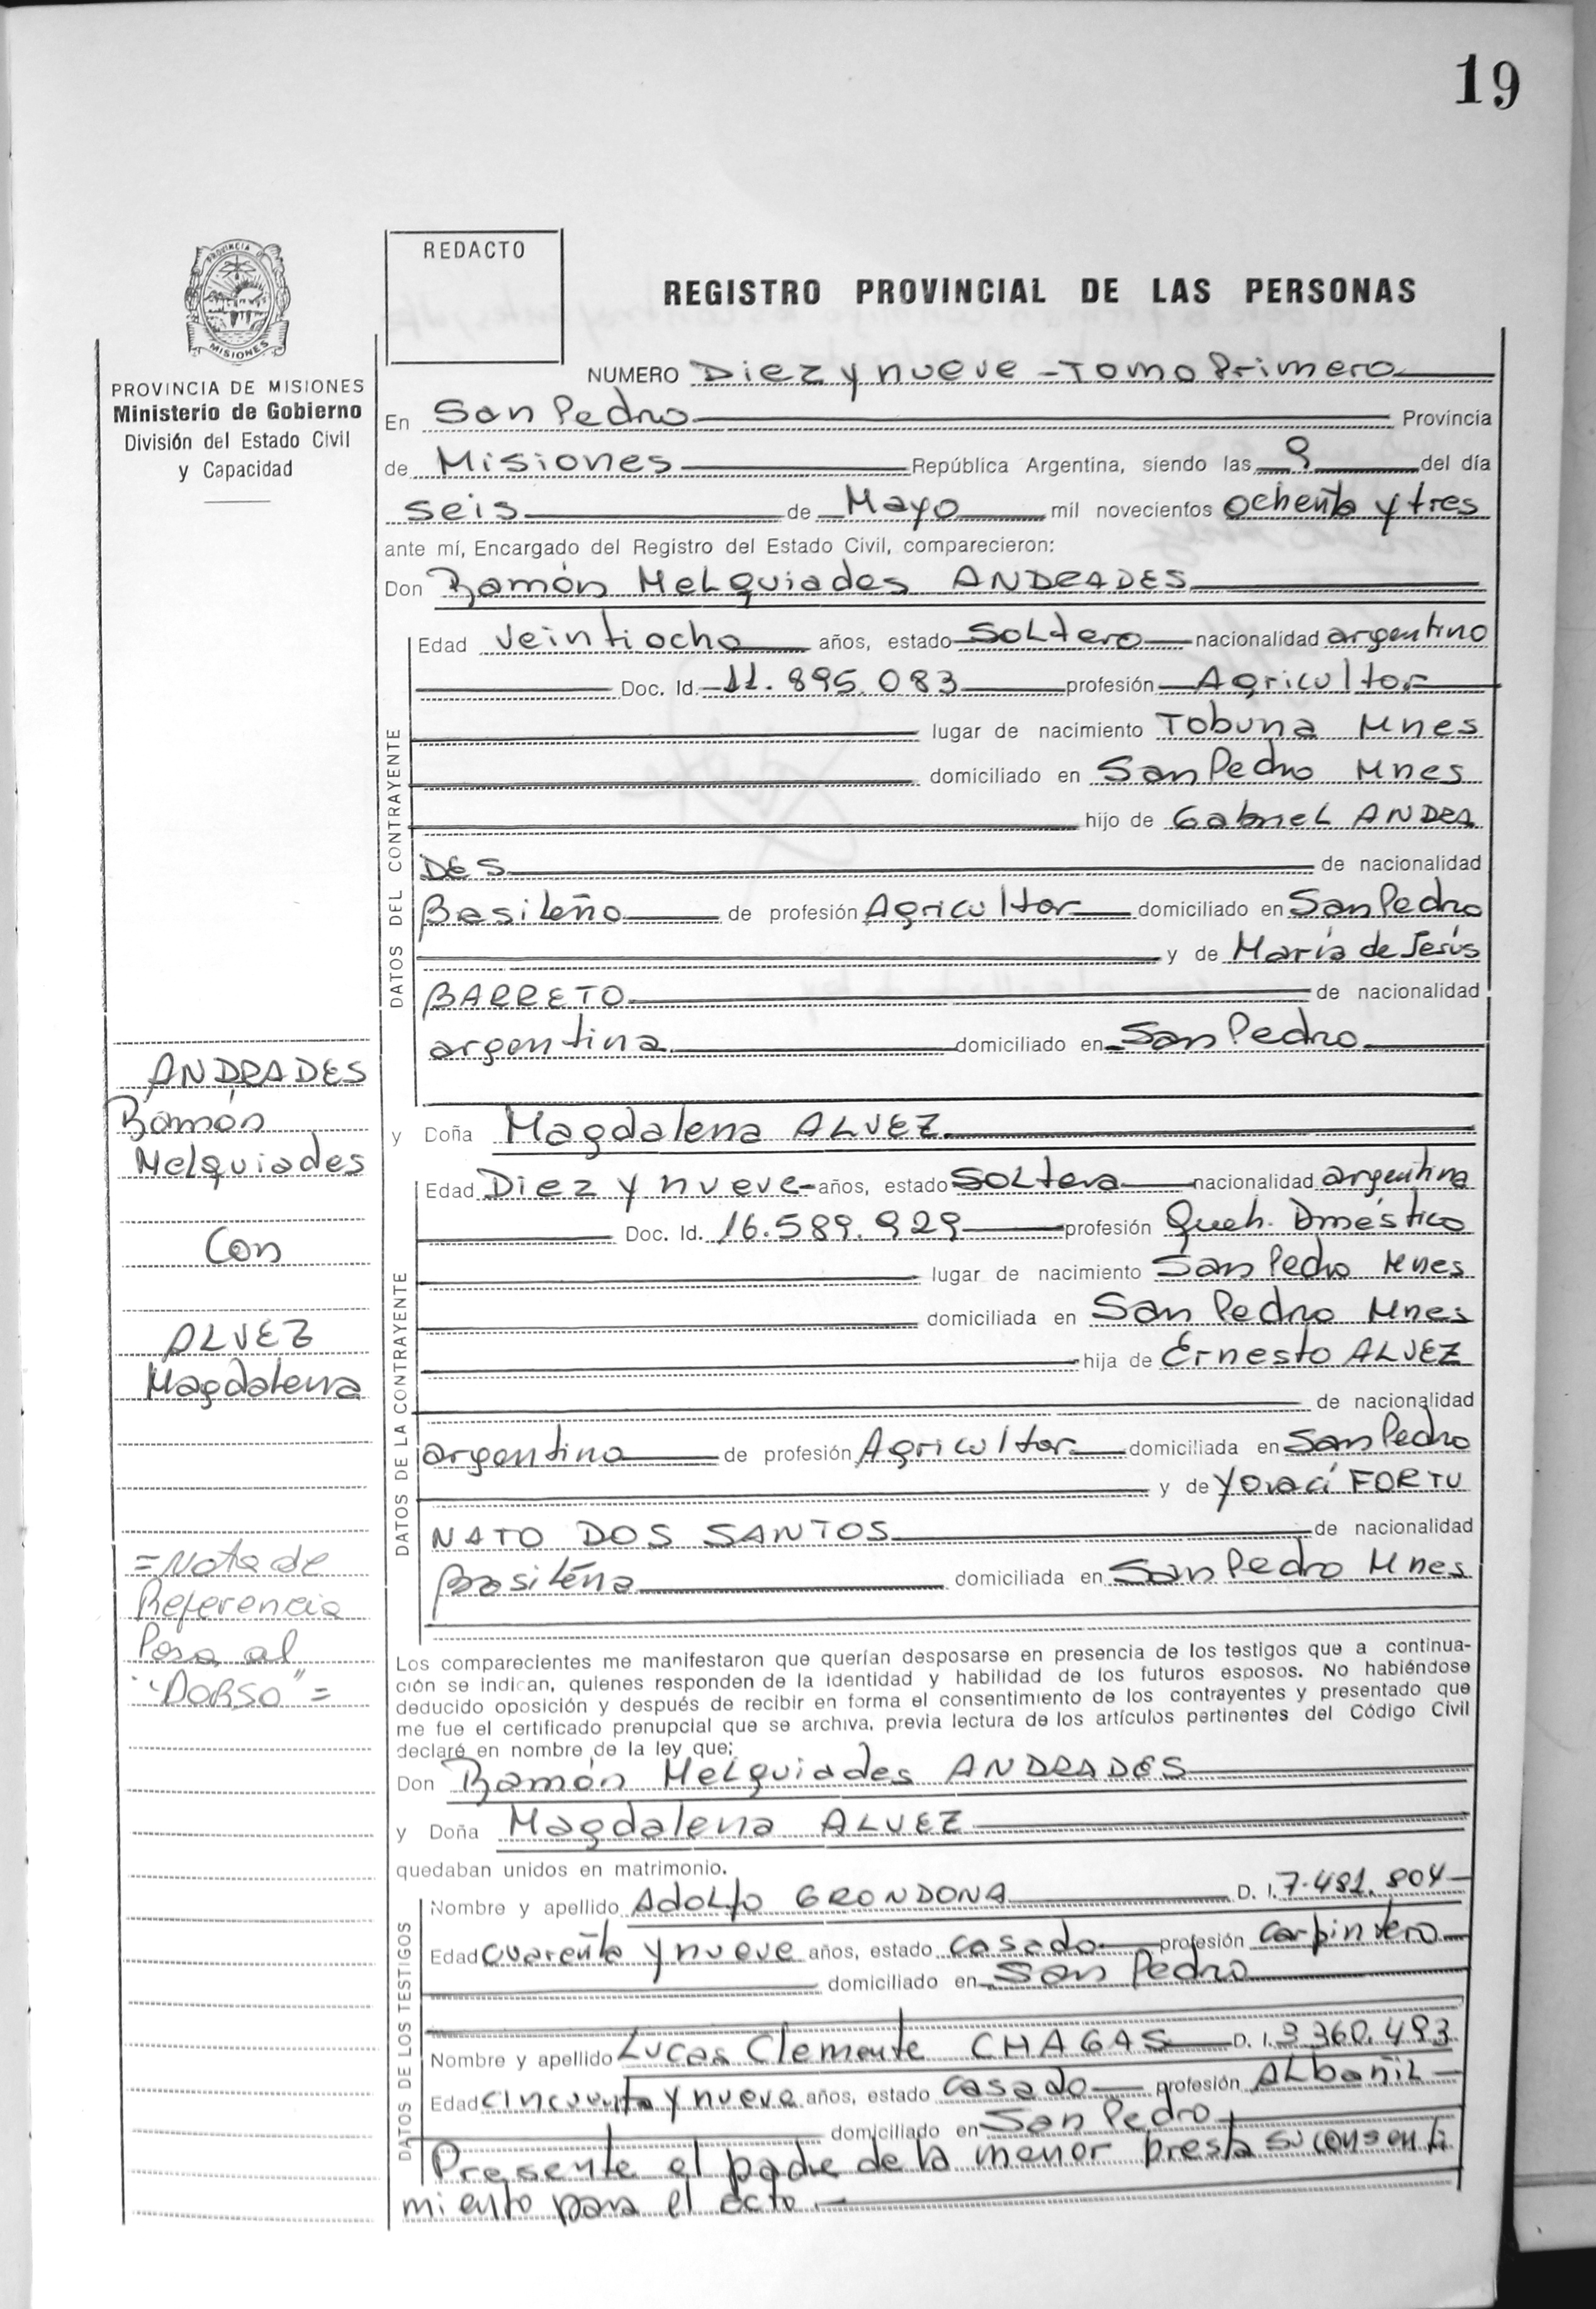 19
PROVINCIA
MISIONES
PROVINCIA DE MISIONES
Ministerio de Gobierno
División del Estado Civil
y Capacidad
REDACTO
REGISTRO PROVINCIAL DE LAS PERSONAS
NUMERO Diez y nueve - Tomo Primero
En San Pedro Provincia
de Misiones República Argentina, siendo las 9 del día
seis de Mayo mil novecientos ochenta y tres
ante mí, Encargado del Registro del Estado Civil, comparecieron:
Don Ramón Melquiades ANDRADES
DATOS DEL CONTRAYENTE
Edad veintiocho años, estado Soltero nacionalidad argentino
Doc. Id. 11.895.083 profesión Agricultor
lugar de nacimiento Tobuna Mnes
domiciliado en San Pedro Mnes
hijo de Gabriel ANDRA
DES de nacionalidad
Basileño de profesión Agricultor domiciliado en San Pedro
y de María de Jesús
BARRETO de nacionalidad
argentina domiciliado en San Pedro
y Doña Magdalena ALVEZ
DATOS DE LA CONTRAYENTE
Edad Diez y nueve años, estado Soltera nacionalidad argentina
Doc. Id. 16.589.929 profesión Queh. Doméstico
lugar de nacimiento San Pedro Mnes
domiciliada en San Pedro Mnes
hija de Ernesto ALVEZ
de nacionalidad
argentino de profesión Agricultor domiciliada en San Pedro
y de Yoraci FORTU
NATO DOS SANTOS de nacionalidad
Brasileña domiciliada en San Pedro Mnes
ANDRADES
Ramón
Melquiades
Con
ALVEZ
Magdalena
=Nota de
Referencia
Pasa al
"DORSO"=
Los comparecientes me manifestaron que querían desposarse en presencia de los testigos que a continua-
ción se indican, quienes responden de la identidad y habilidad de los futuros esposos. No habiéndose
deducido oposición y después de recibir en forma el consentimiento de los contrayentes y presentado que
me fue el certificado prenupcial que se archiva, previa lectura de los artículos pertinentes del Código Civil
declaré en nombre de la ley que;
Don Ramón Melquiades ANDRADES
y Doña Magdalena ALVEZ
quedaban unidos en matrimonio.
DATOS DE LOS TESTIGOS
Nombre y apellido Adolfo GRONDONA D. I. 7.481.804
Edad cuarenta y nueve años, estado casado profesión carpintero
domiciliado en San Pedro
Nombre y apellido Lucas Clemente CHAGAS D. I. 3.360.483
Edad cincuenta y nueve años, estado casado profesión Albañil
domiciliado en San Pedro
Presente el padre de la menor presta su consenti
miento para el acto.